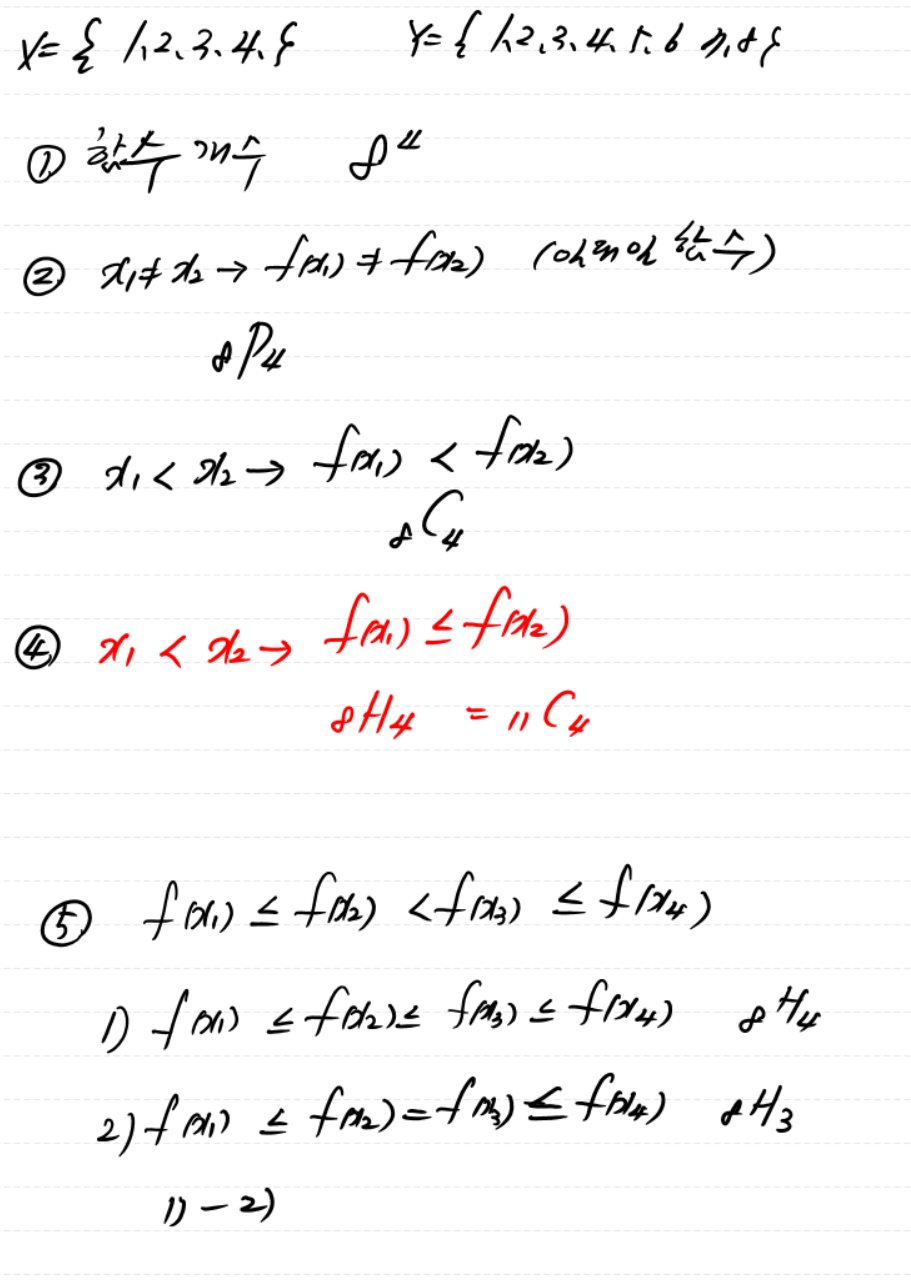 X = { 1, 2, 3, 4, } Y = { 1, 2, 3, 4, 5, 6 7, 8 }
① 함수 개수 8⁴
② x₁ ≠ x₂ → f(x₁) ≠ f(x₂) (일대일 함수)
₈P₄
③ x₁ < x₂ → f(x₁) < f(x₂)
₈C₄
④ x₁ < x₂ → f(x₁) ≤ f(x₂)
₈H₄ = ₁₁C₄
⑤ f(x₁) ≤ f(x₂) < f(x₃) ≤ f(x₄)
1) f(x₁) ≤ f(x₂) ≤ f(x₃) ≤ f(x₄) ₈H₄
2) f(x₁) ≤ f(x₂) = f(x₃) ≤ f(x₄) ₈H₃
1) - 2)